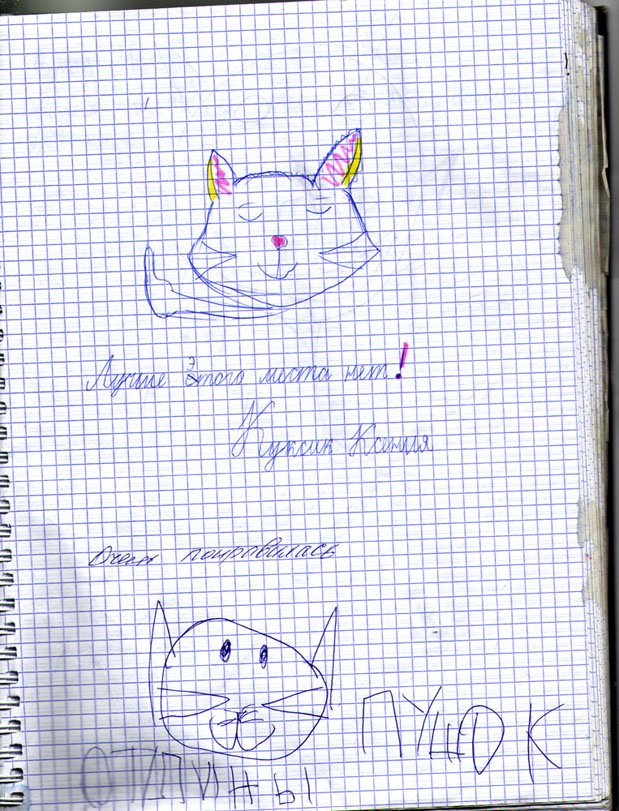 Лучше этого места нет!
Куксик Ксения
Очень понравилась
ПУШОК
ОТ ПИНЫ